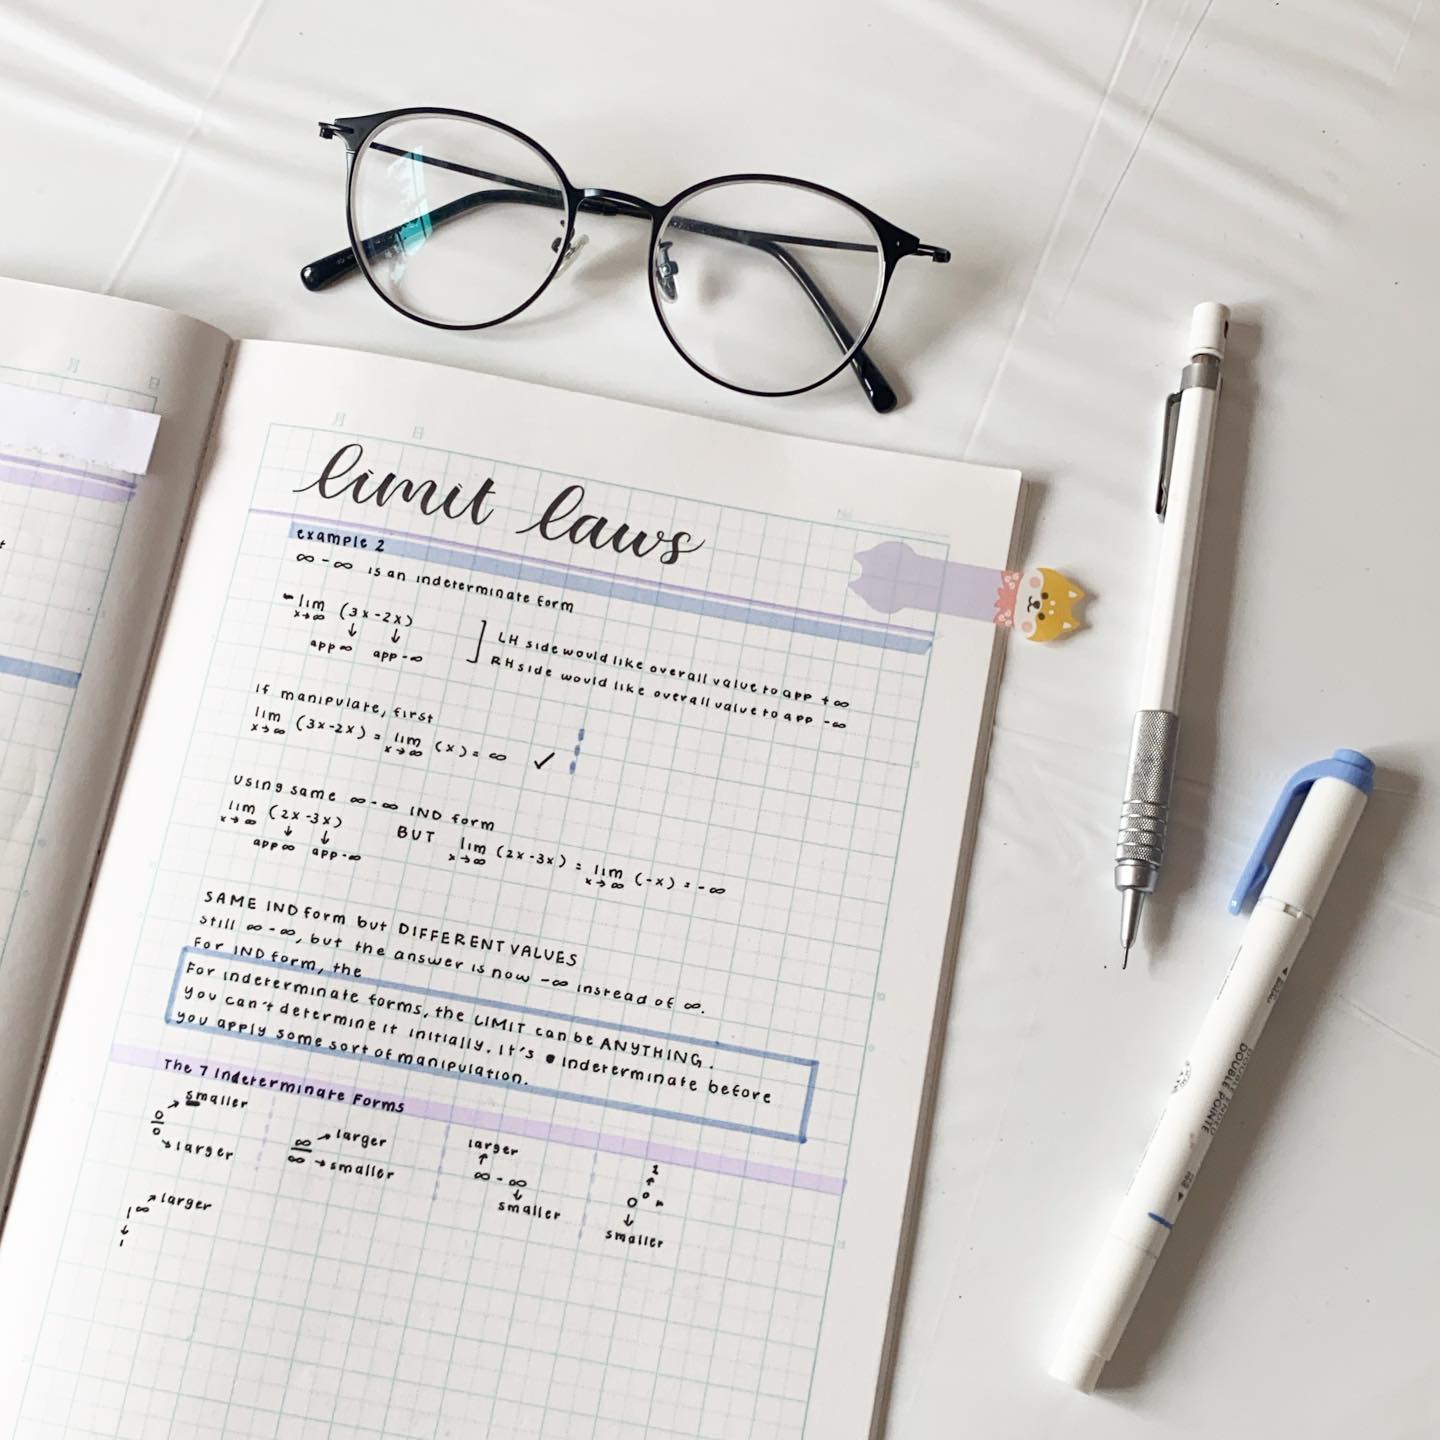 月 日
月 日
No.
limit laws
example 2
∞ - ∞ is an indeterminate form
lim (3x - 2x)
x→∞ ↓ ↓
app ∞ app -∞
] LH side would like overall value to app +∞
RH side would like overall value to app -∞
if manipulate, first
lim (3x-2x) = lim (x) = ∞ ✓
x→∞ x→∞
using same ∞ - ∞ IND form
lim (2x - 3x) BUT lim (2x - 3x) = lim (-x) = -∞
x→∞ ↓ ↓ x→∞ x→∞
app ∞ app -∞
SAME IND form but DIFFERENT VALUES
still ∞ - ∞, but the answer is now -∞ instead of ∞.
For IND form, the
For indeterminate forms, the LIMIT can be ANYTHING.
you can't determine it initially. it's indeterminate before
you apply some sort of manipulation.
The 7 Indeterminate Forms
0/0 ↗ smaller ↘ larger
∞/∞ → larger → smaller
larger
↑
∞ - ∞
↓
smaller
1
↑
0⁰
↓
smaller
1^∞ ↗ larger
↓
1
DOUBLE POINTE